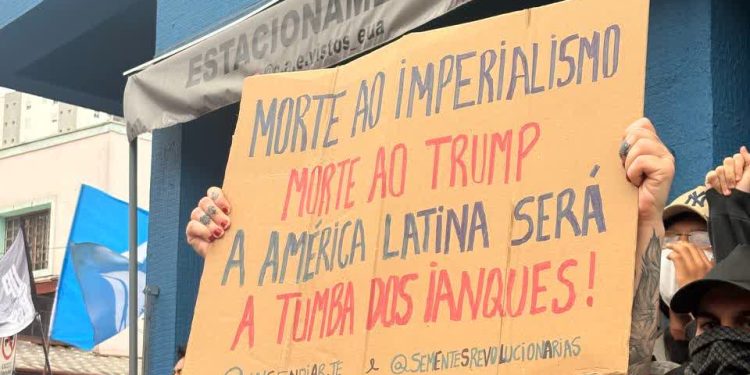 ESTACIONAME
MORTE AO IMPERIALISMO
MORTE AO TRUMP
A AMÉRICA LATINA SERÁ
A TUMBA DOS IANQUES!
e @SEMENTESREVOLUCIONARIAS